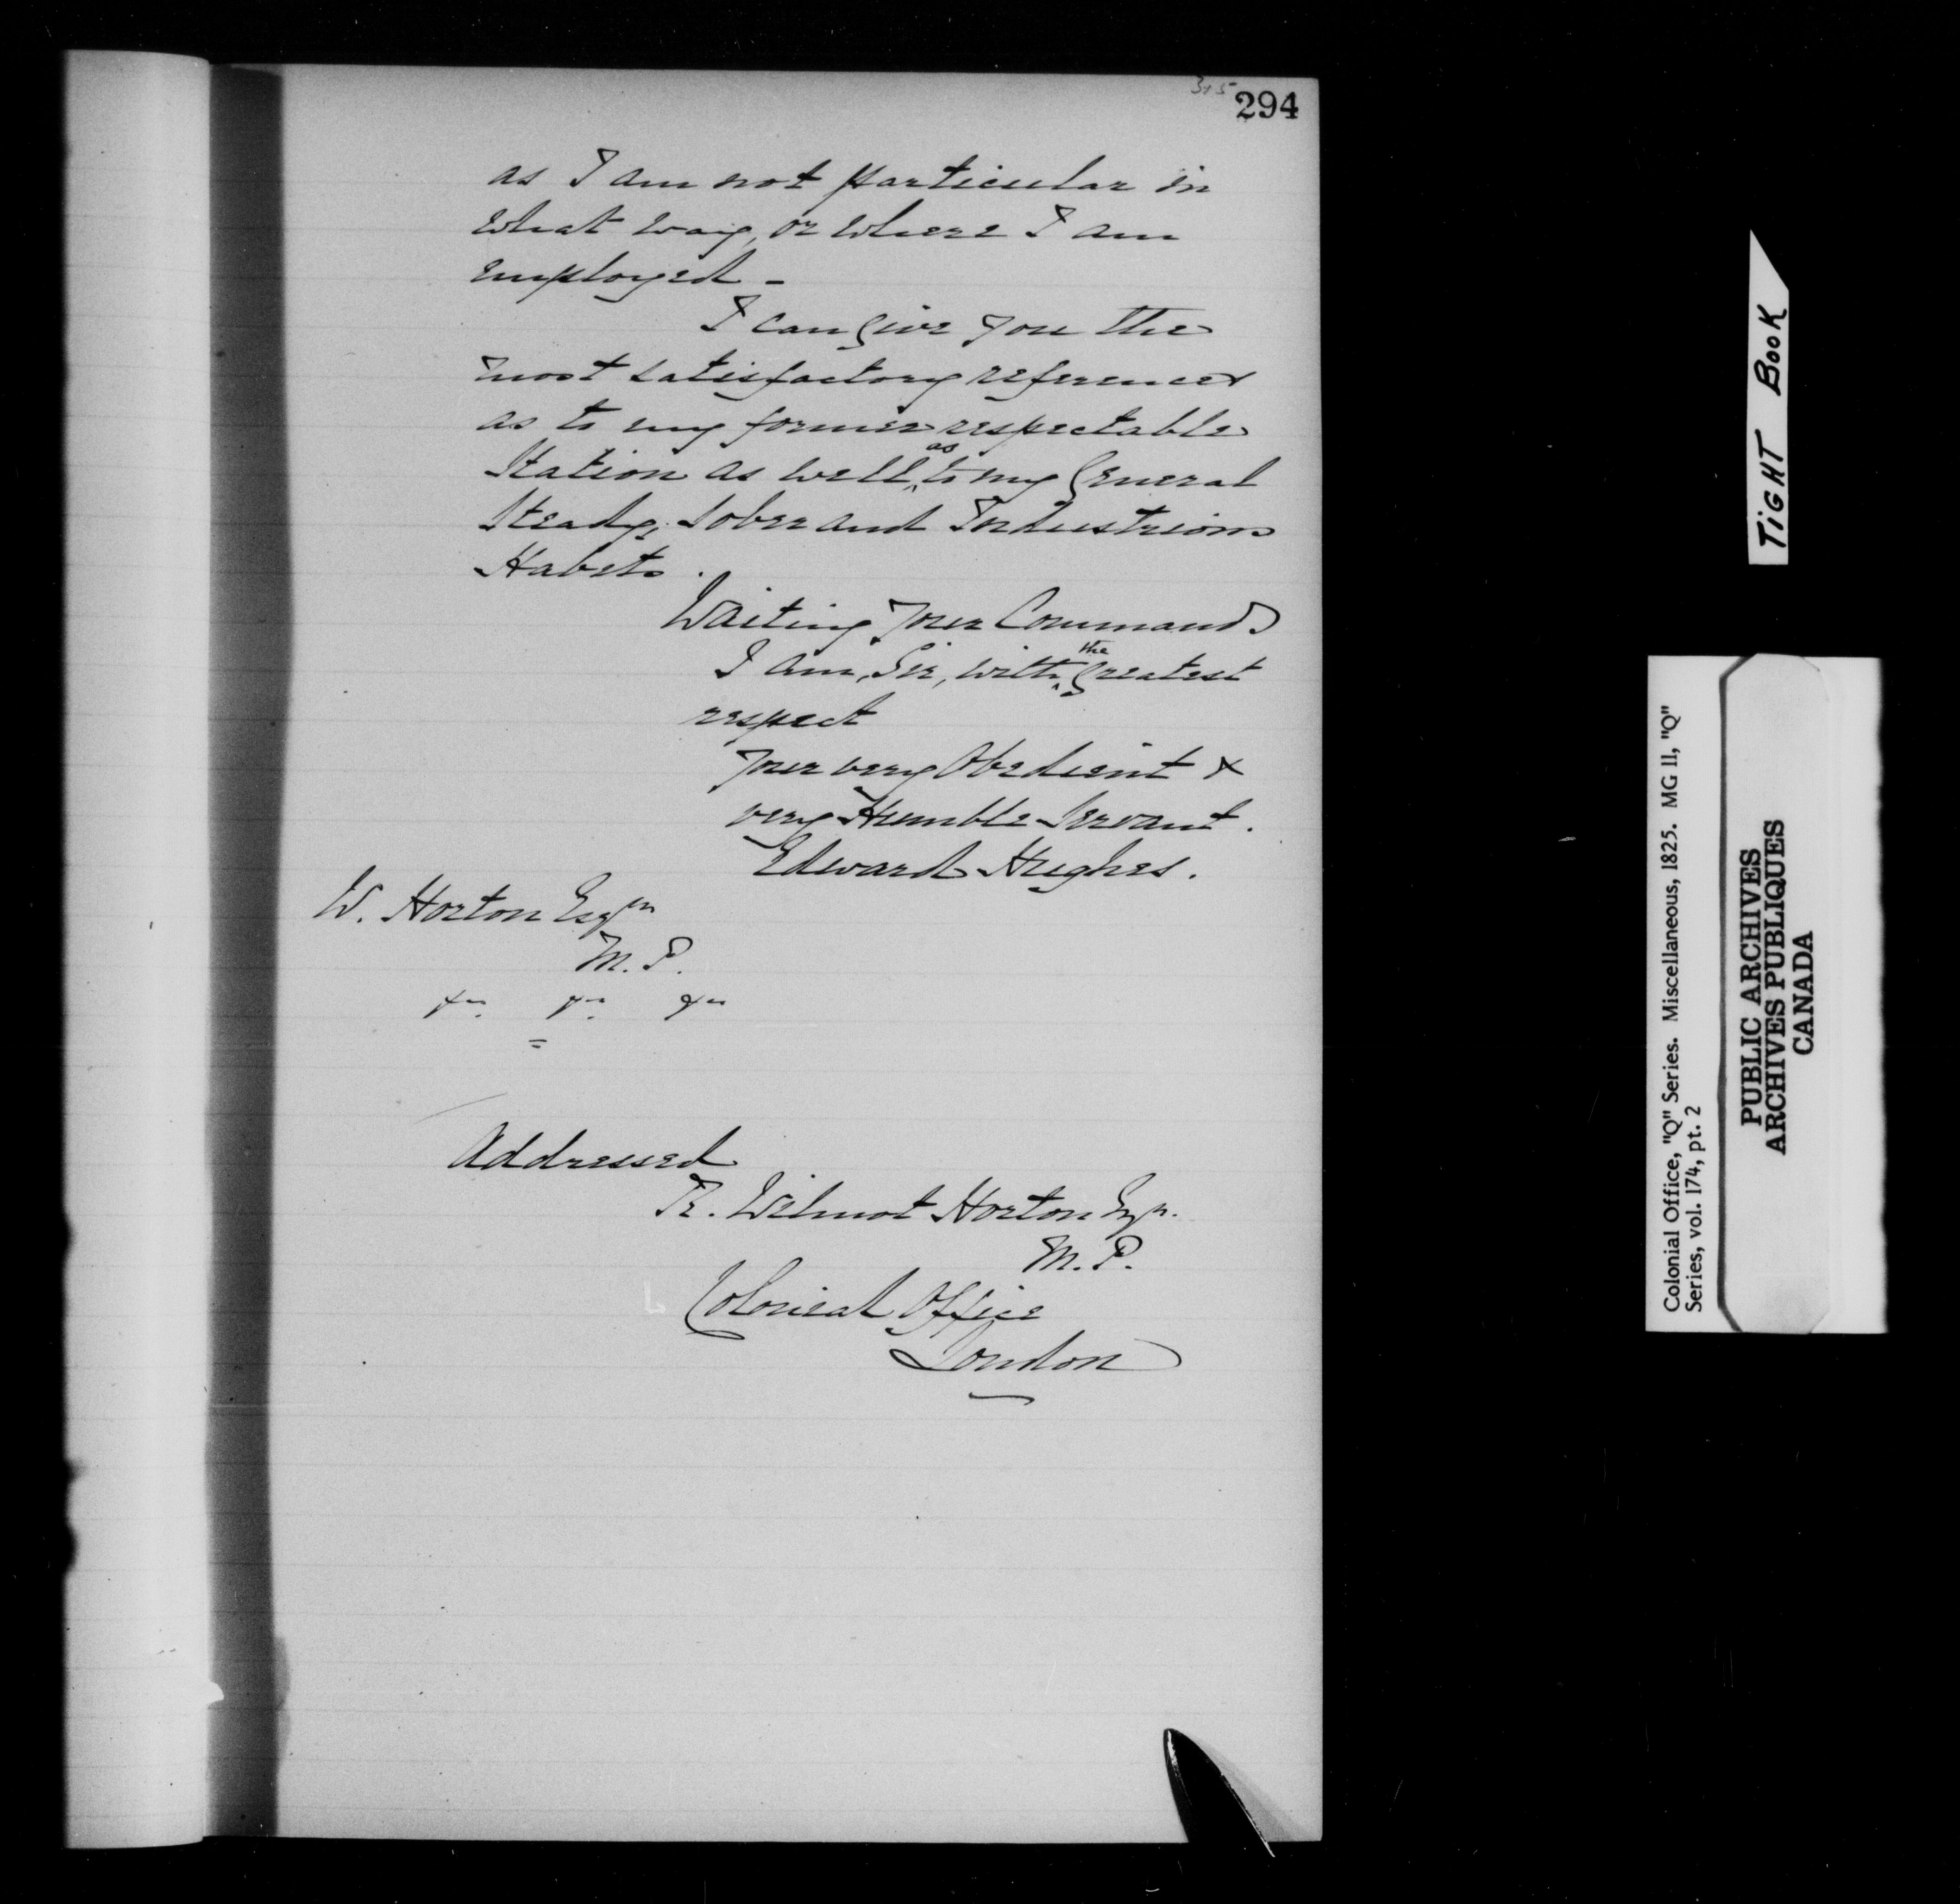 315
294
as I am not particular in
what way, or where I am
employed -
I can give you the
most satisfactory references
as to my former respectable
Station as well as to my General
Steady, Sober and Industrious
Habits.
Waiting your Commands
I am, Sir, with the greatest
respect
Your very Obedient &
very Humble Servant.
Edward Hughes.
W. Horton Esqre
M.P.
&c. &c. &c
Addressed
R. Wilmot Horton Esqr.
M.P.
Colonial Office
London
TIGHT BOOK
Colonial Office, "Q" Series. Miscellaneous, 1825. MG 11, "Q"
Series, vol. 174, pt. 2
PUBLIC ARCHIVES
ARCHIVES PUBLIQUES
CANADA